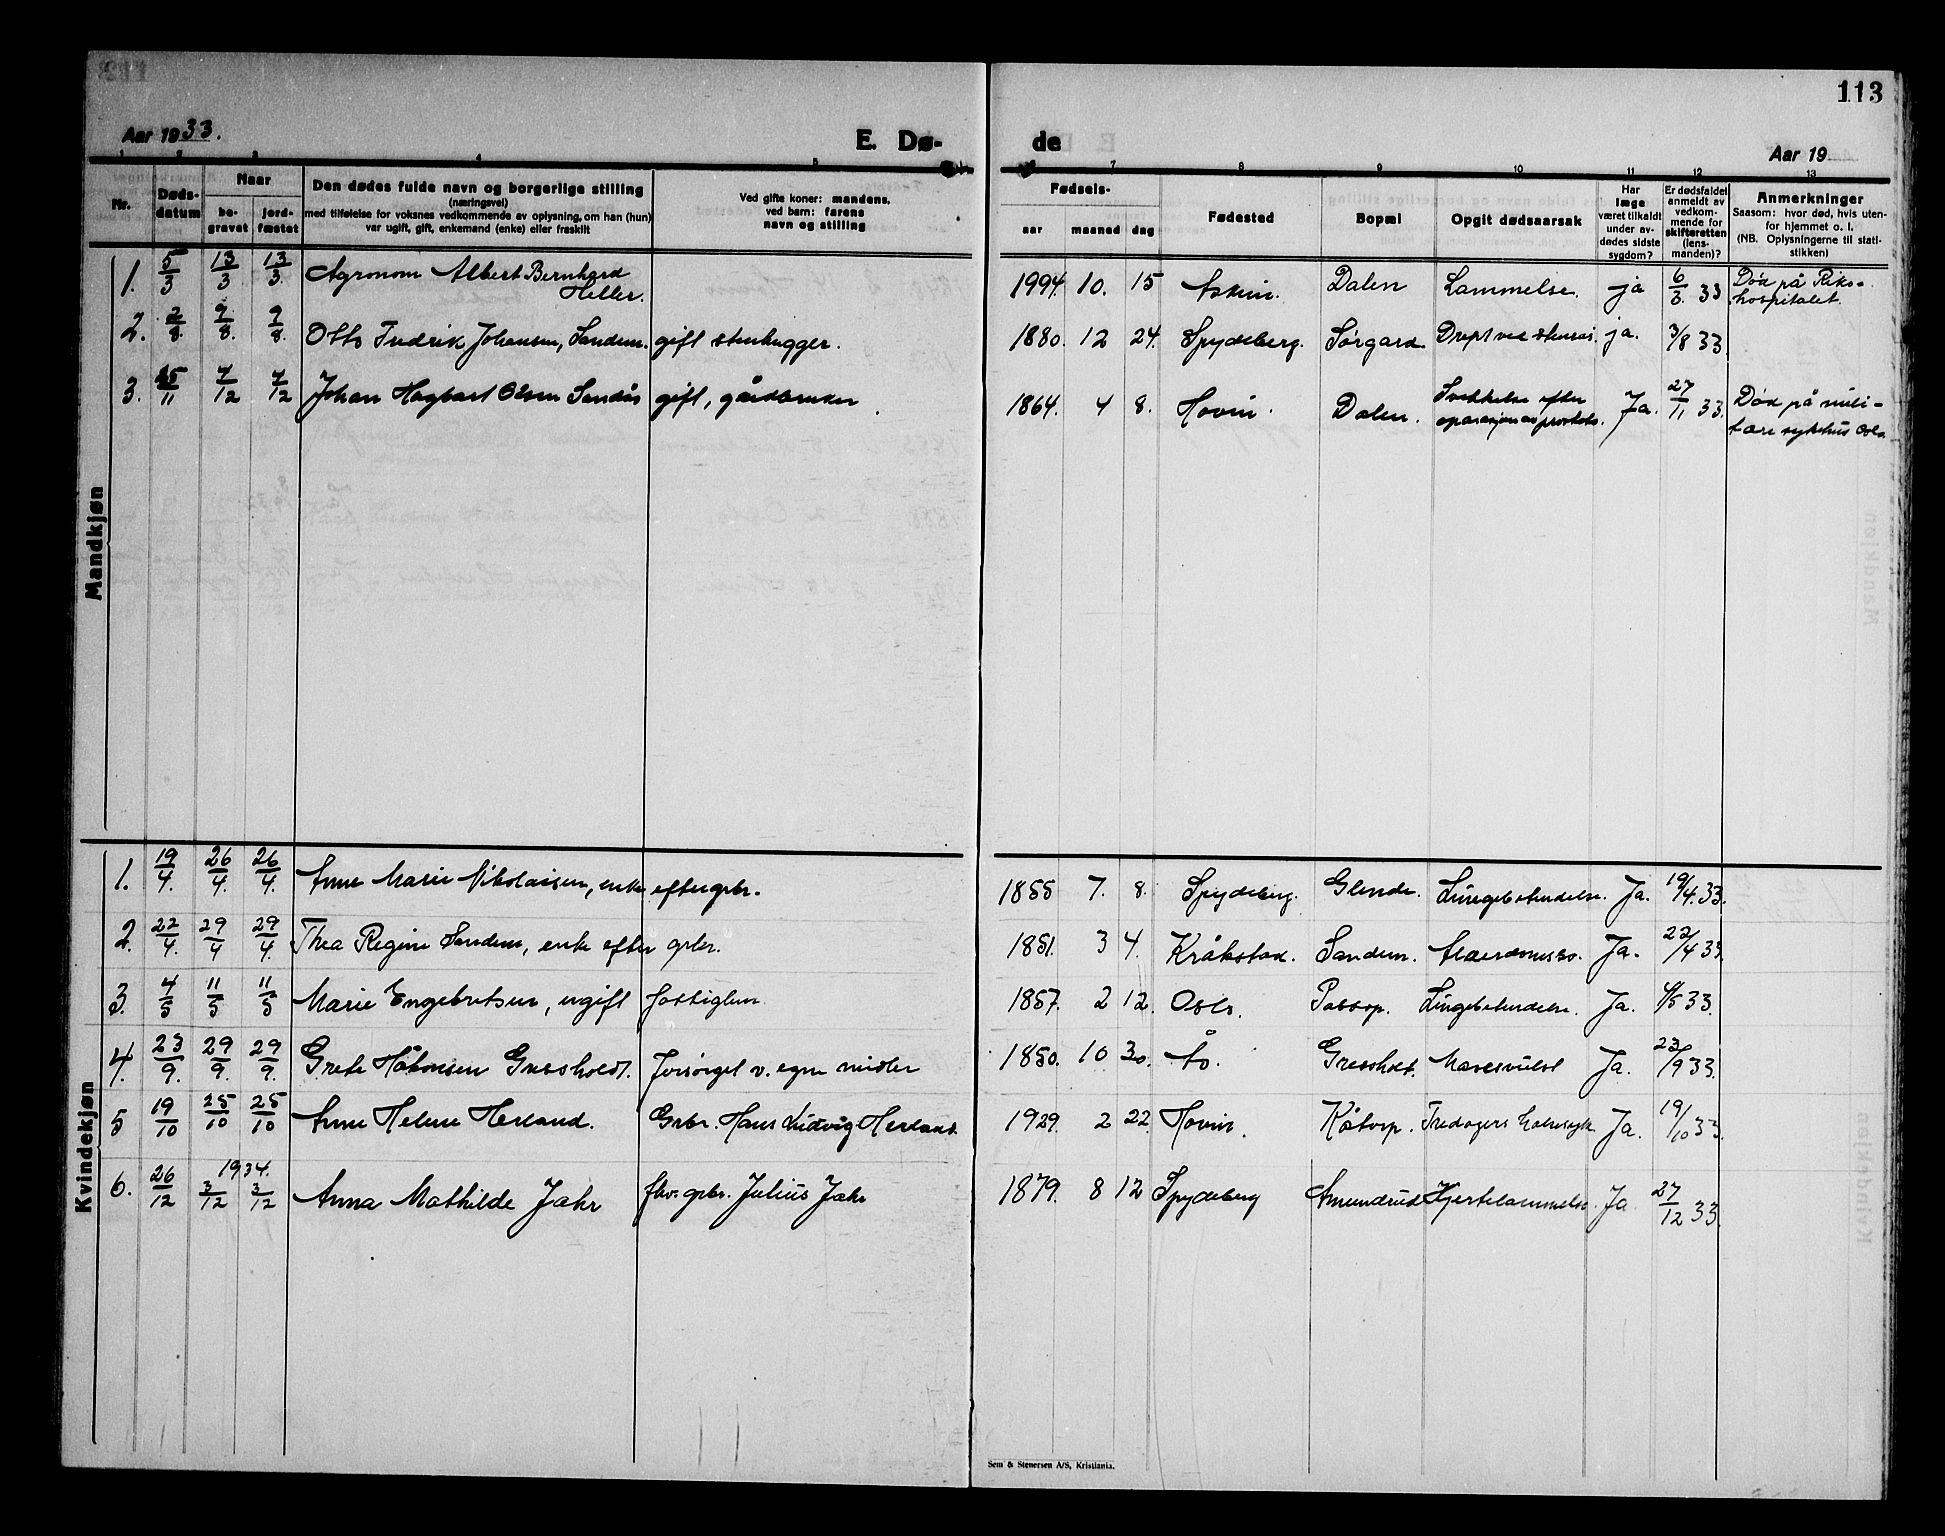 113
Aar 1933.
E. Dø- de
Aar 19
1 2 3 4 5 7 8 9 10 11 12 13
Nr.
Døds-
datum
Naar
be-
gravet
jord-
fæstet
Den dødes fulde navn og borgerlige stilling
(næringsvei)
med tilføielse for voksnes vedkommende av oplysning, om han (hun)
var ugift, gift, enkemand (enke) eller fraskilt
Ved gifte koner: mandens,
ved barn: farens
navn og stilling
Fødsels-
aar maaned dag
Fødested
Bopæl
Opgit dødsaarsak
Har
læge
været tilkaldt
under av-
dødes sidste
sygdom?
Er dødsfaldet
anmeldt av
vedkom-
mende for
skifteretten
(lens-
manden)?
Anmerkninger
Saasom: hvor død, hvis uten-
for hjemmet o. l.
(NB. Oplysningerne til stati-
stikken)
Mandkjøn
1. 5/3 13/3 13/3. Agronom Albert Bernhard
Heller. 1994. 10. 15 Askim. Dalen Lammelse. ja 6/3 33 Død på Riks-
hospitalet.
2. 2/8. 9/8. 9/8. Otto Fredrik Johansen, Sandem. gift stenhugger. 1880. 12 24. Spydeberg. Sørgard Drept ved stensras. ja. 3/8 33.
3. 25/11 7/12 7/12 Johan Hagbart Olsen Sandås gift, gårdbruker. 1864. 4 8. Hovin. Dalen. Svekkelse efter
operasjon av prostata. Ja. 27/11 33. Død på mili-
tære sykehus Oslo.
Kvindekjøn
1. 19/4. 26/4. 26/4. Anne Marie Nikolaisen, enke efter grbr. 1855 7. 8. Spydeberg. Glende. Lungebetendelse. Ja. 19/4. 33.
2. 22/4. 29/4 29/4. Thea Regine Sandem, enke efter grbr. 1851. 3 4. Kråkstad. Sandem. Alderdomss. Ja. 22/4 33.
3. 4/5 11/5 11/5 Marie Engebretsen, ugift fattiglem. 1857. 2 12. Oslo. Lungebetendelse. Ja. 4/5 33.
4. 23/9. 29/9. 29/9. Grete Håkonsen Gressholdt. Forsørget v. egne midler 1850. 10 30. Ås. Gressholt. Mavesvulst Ja. 23/9 33.
5 19/10 25/10 25/10 Anne Helene Herland. Grbr. Hans Ludvig Herland. 1929. 2 22. Hovin. Kåtorp. Tredagers halsesyk. Ja. 19/10 33.
6. 26/12 1934. 3/12 3/12 Anna Mathilde Jahr fhv. grbr. Julius Jahr 1879. 8 12 Spydeberg Amundrud Hjertelammelse. Ja. 27/12 33.
Sem & Stenersen A/S, Kristiania.